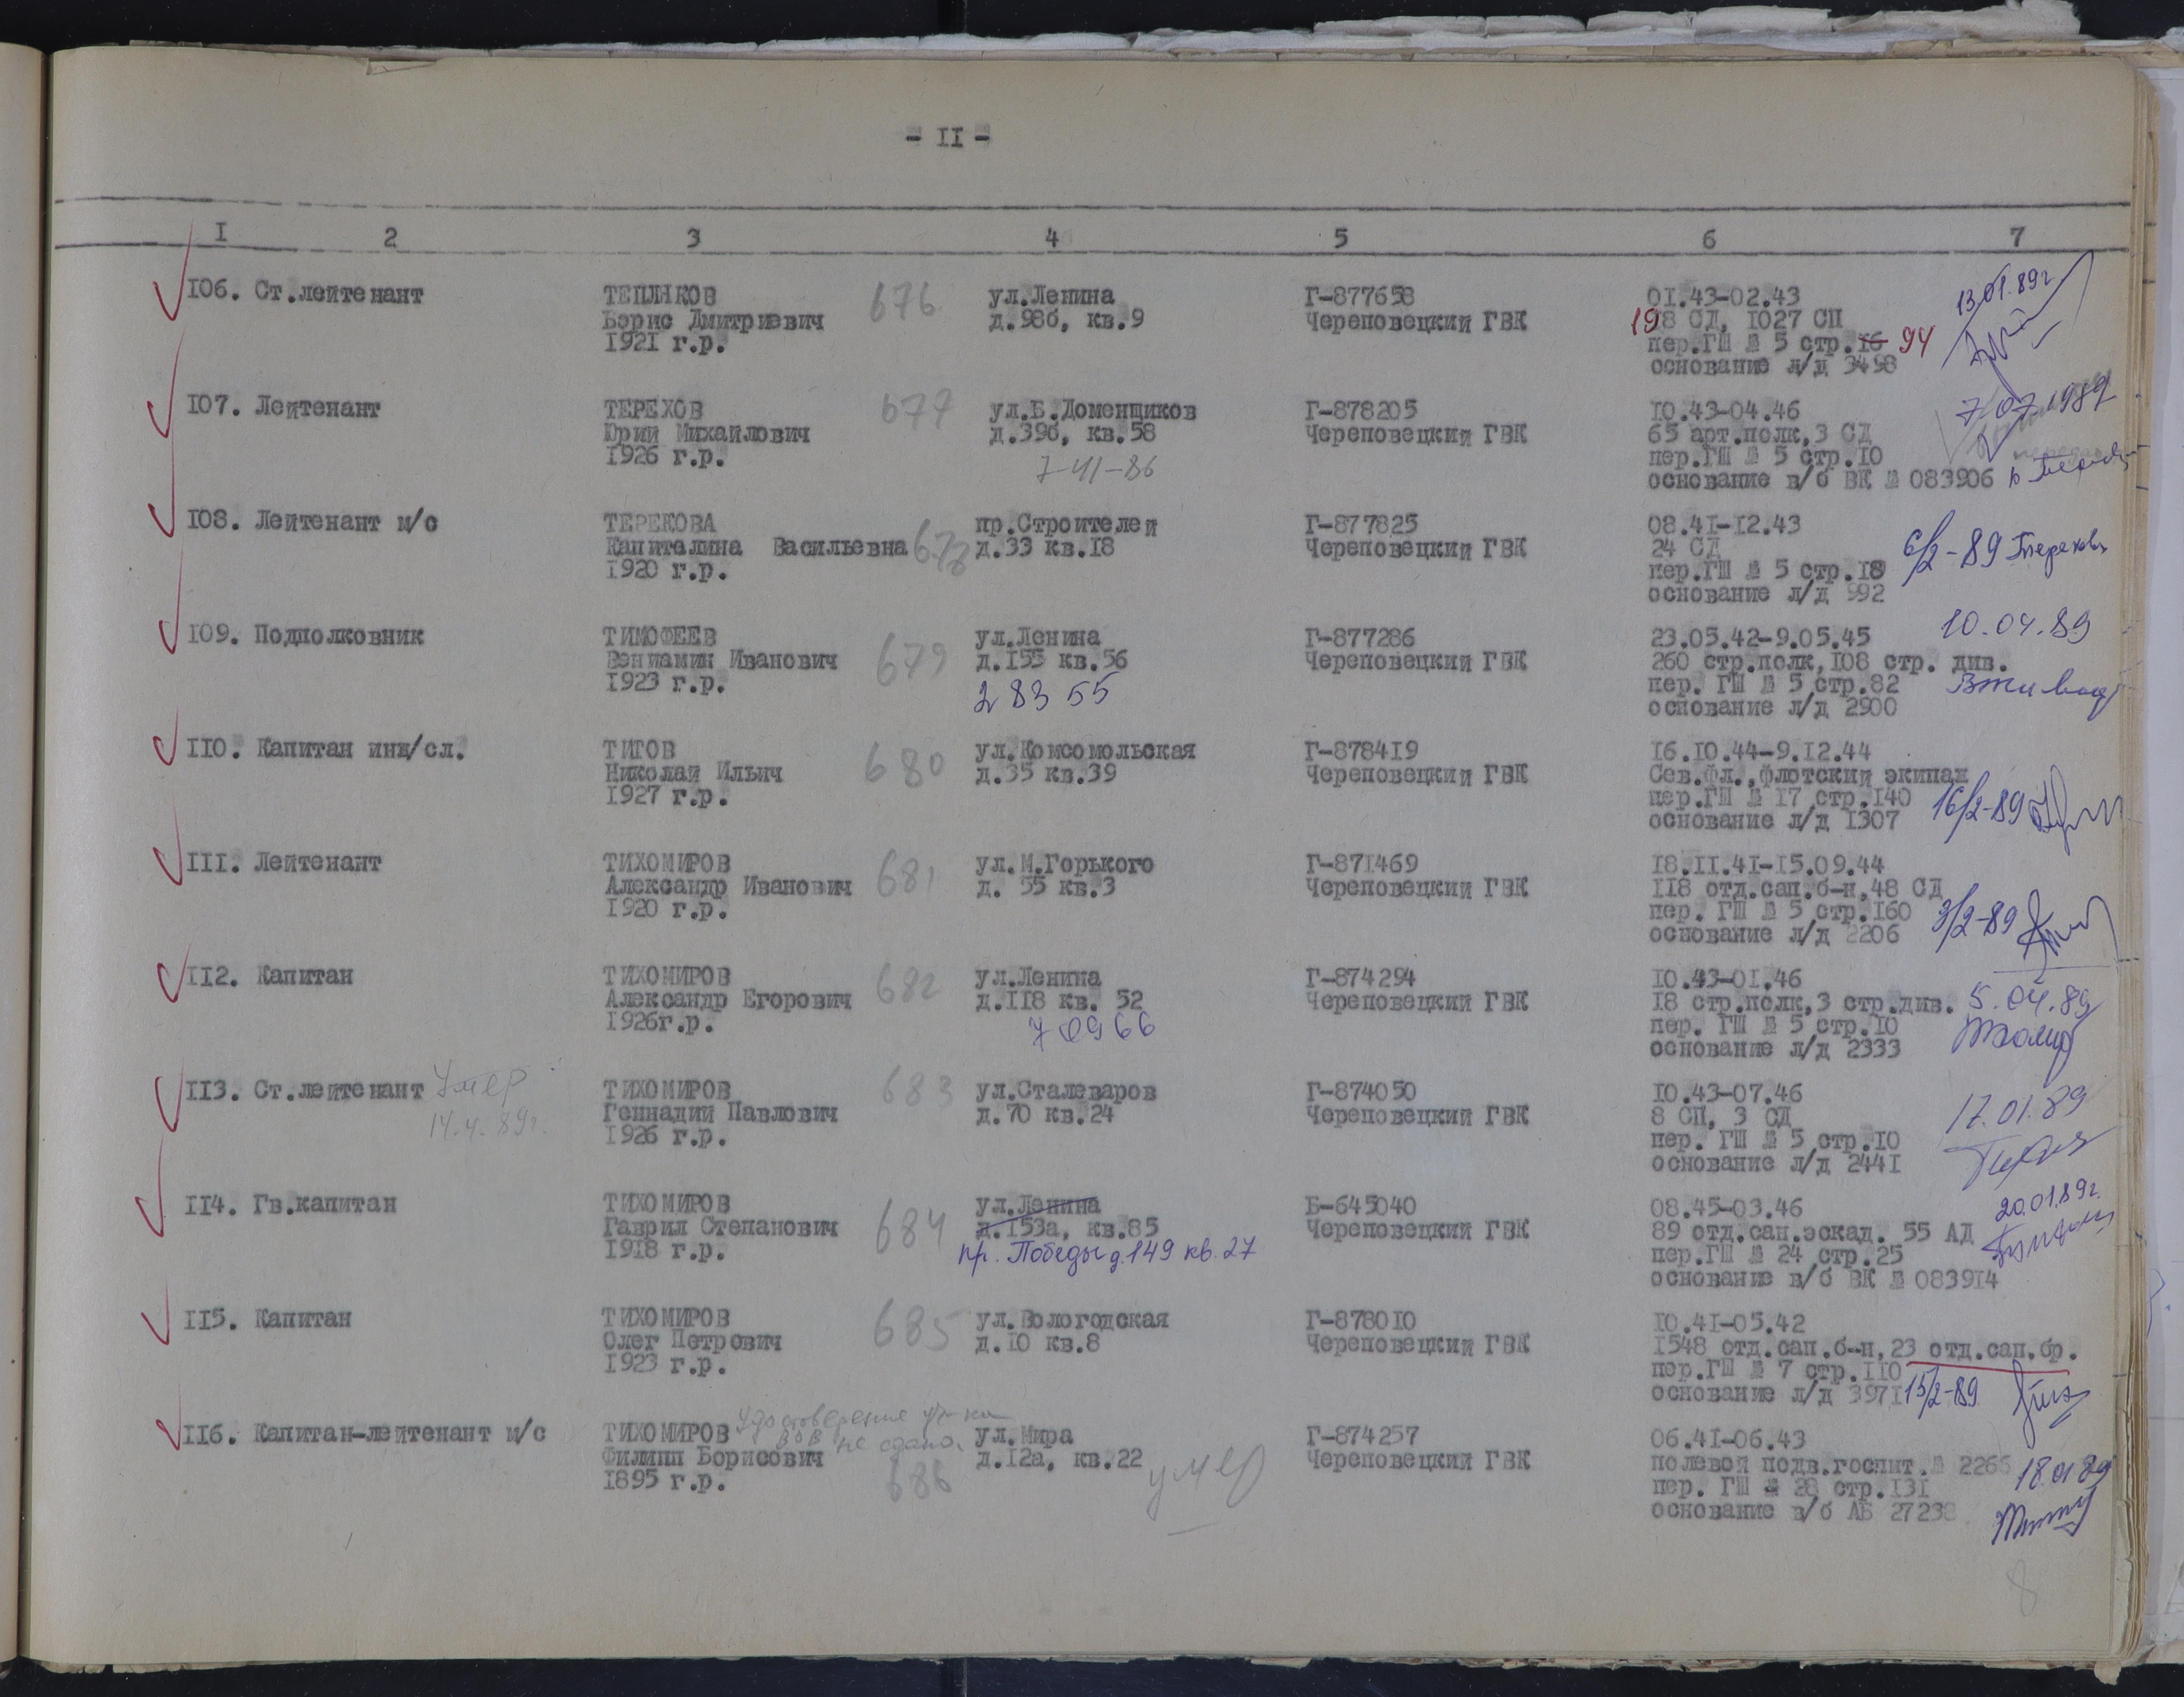 - II -
I 2 3 4 5 6 7
106. Ст.лейтенант ТЕПЛЯКОВ 676 ул.Ленина Г-877658 01.43-02.43 13.01.89г
Борис Дмитриевич д.98б, кв.9 Череповецкий ГВК 198 СД, 1027 СП
1921 г.р. пер.ГШ № 5 стр.16 94
основание л/д 3498
107. Лейтенант ТЕРЕХОВ 677 ул.Б.Доменщиков Г-878205 10.43-04.46 7.07.1989
Юрий Михайлович д.39б, кв.58 Череповецкий ГВК 65 арт.полк,3 СД
1926 г.р. 7-41-86 пер.ГШ № 5 стр.10
основание в/б ВК № 083906
108. Лейтенант м/с ТЕРЕХОВА пр.Строителей Г-877825 08.41-12.43
Капиталина Васильевна 678 д.33 кв.18 Череповецкий ГВК 24 СД 6/2-89 Терехова
1920 г.р. пер.ГШ № 5 стр.18
основание л/д 992
109. Подполковник ТИМОФЕЕВ ул.Ленина Г-877286 23.05.42-9.05.45 10.04.89
Вениамин Иванович 679 д.155 кв.56 Череповецкий ГВК 260 стр.полк,108 стр. див.
1923 г.р. 2 83 55 пер. ГШ № 5 стр.82
основание л/д 2900
110. Капитан инж/сл. ТИТОВ 680 ул.Комсомольская Г-878419 16.10.44-9.12.44
Николай Ильич д.35 кв.39 Череповецкий ГВК Сев.фл.,флотский экипаж
1927 г.р. пер.ГШ № 17 стр.140 16/2-89
основание л/д 1307
111. Лейтенант ТИХОМИРОВ 681 ул.М.Горького Г-871469 18.11.41-15.09.44
Александр Иванович д. 55 кв.3 Череповецкий ГВК 118 отд.сап.б-н,48 СД
1920 г.р. пер. ГШ № 5 стр.160 3/2-89
основание л/д 2206
112. Капитан ТИХОМИРОВ 682 ул.Ленина Г-874294 10.43-01.46
Александр Егорович д.118 кв. 52 Череповецкий ГВК 18 стр.полк,3 стр.див. 5.04.89
1926г.р. 7 09 66 пер. ГШ № 5 стр.10
основание л/д 2333
113. Ст.лейтенант Умер ТИХОМИРОВ 683 ул.Сталеваров Г-874050 10.43-07.46 17.01.89
14.4.89г. Геннадий Павлович д.70 кв.24 Череповецкий ГВК 8 СП, 3 СД
1926 г.р. пер. ГШ № 5 стр.10
основание л/д 2441
114. Гв.капитан ТИХОМИРОВ ул.Ленина Б-645040 08.45-03.46 20.01.89г.
Гаврил Степанович 684 д.153а, кв.85 Череповецкий ГВК 89 отд.сан.эскад. 55 АД
1918 г.р. пр. Победы д.149 кв.27 пер.ГШ № 24 стр.25
основание в/б ВК № 083914
115. Капитан ТИХОМИРОВ 685 ул.Вологодская Г-878010 10.41-05.42
Олег Петрович д.10 кв.8 Череповецкий ГВК 1548 отд.сап.б-н,23 отд.сап.бр.
1923 г.р. пер.ГШ № 7 стр.110
основание л/д 3971 15/2-89
116. Капитан-лейтенант м/с ТИХОМИРОВ Удостоверение уч-ка ВОВ не сдано. ул.Мира Г-874257 06.41-06.43
Филипп Борисович 686 д.12а, кв.22 умер Череповецкий ГВК полевой подв.госпит.№ 2266 18.01.89
1895 г.р. пер. ГШ № 28 стр.131
основание в/б АБ 27238
8